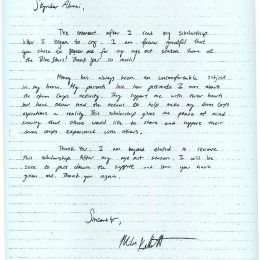 Alumni,
The moment after I read my scholarship
letter I began to cry. I am forever grateful that
you chose to sponsor me for my age out season home at
the Blue Stars! Thank you so much!
Money has always been an uncomfortable subject
in my house. My parents love how passionate I am about
the drum corps activity. They support me with their hearts
but have never had the means to help make my drum corps
aspirations a reality. This scholarship gives me peace of mind
knowing that others would like to share and support their
drum corps experience with others.
Thank you. I am beyond elated to receive
this scholarship. After my age out season I will be
sure to pass down the support and love you have
given me. Thank you again.
Sincerely,